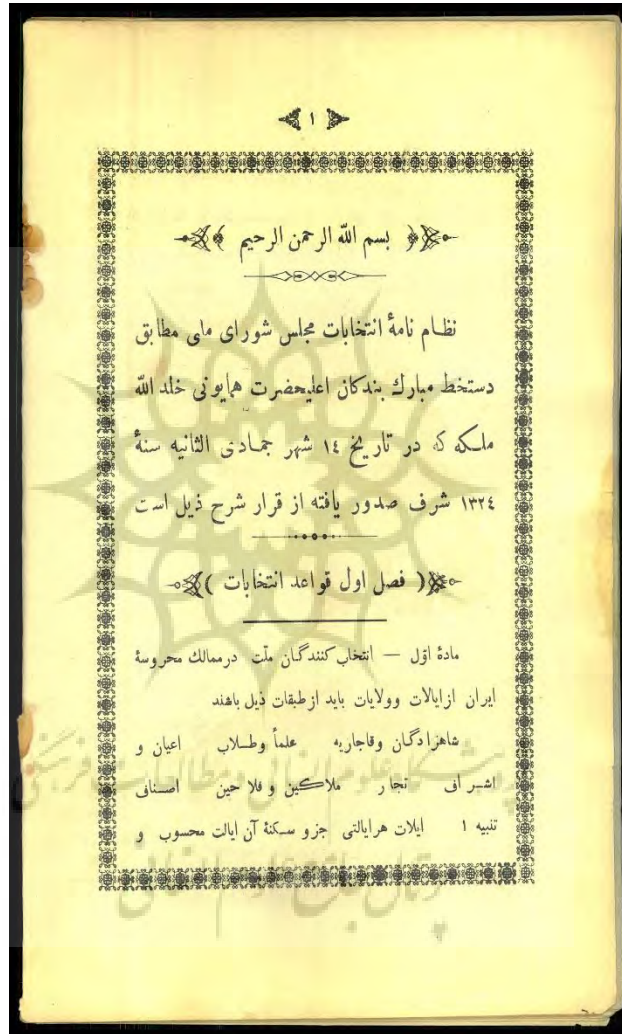 ١
بسم الله الرحمن الرحیم
نظام نامهٔ انتخابات مجلس شورای ملی مطابق
دستخط مبارك بندکان اعلیحضرت همایونی خلد الله
ملکه که در تاریخ ١٤ شهر جمادی الثانیه سنهٔ
١٣٢٤ شرف صدور یافته از قرار شرح ذیل است
( فصل اول قواعد انتخابات )
مادهٔ اوّل — انتخاب کنندگان ملّت درممالك محروسهٔ
ایران ازایالات وولایات باید ازطبقات ذیل باشند
شاهزادگان وقاجاریه علمأ وطلاب اعیان و
اشرافی تجار ملاکین وفلاحین اصنافی
تنبیه ١ ایلات هرایالتی جزو سکنهٔ آن ایالت محسوب و
پژوهشگاه علوم انسانی و مطالعات فرهنگی
پرتال جامع علوم انسانی